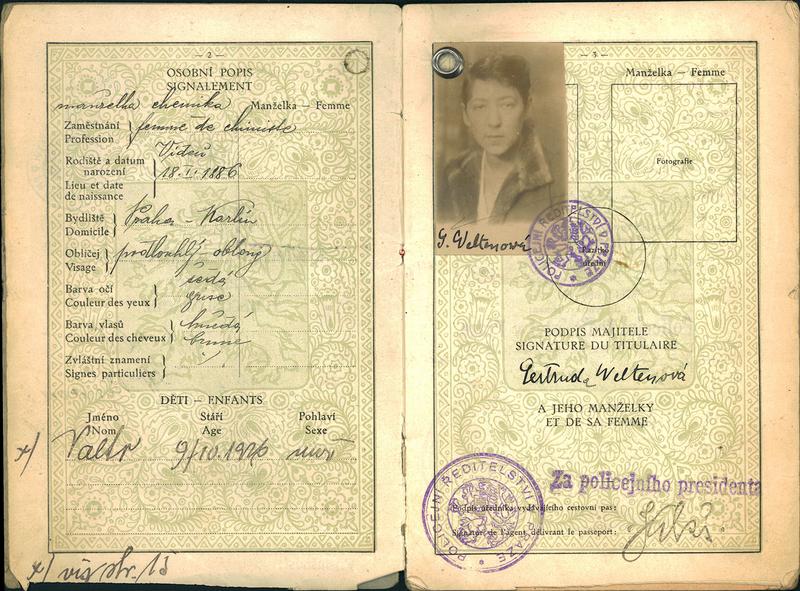 - 2 -
OSOBNÍ POPIS
SIGNALEMENT
manželka chemika
Manželka — Femme
Zaměstnání
Profession
femme de chimiste
Rodiště a datum
narození
Lieu et date
de naissance
Vídeň
18.I.1886
Bydliště
Domicile
Praha - Karlín
Obličej
Visage
podlouhlý oblong
Barva očí
Couleur des yeux
šedá
grise
Barva vlasů
Couleur des cheveux
hnědá
brune
Zvláštní znamení
Signes particuliers
DĚTI — ENFANTS
Jméno
Nom
Stáří
Age
Pohlaví
Sexe
x/ Valtr 9/IV.1926
x/ viz str. 15
- 3 -
Manželka — Femme
Fotografie
G. Weltenová
POLICEJNÍ ŘEDITELSTVÍ V PRAZE
PODPIS MAJITELE
SIGNATURE DU TITULAIRE
Gertruda Weltenová
A JEHO MANŽELKY
ET DE SA FEMME
Za policejního presidenta
POLICEJNÍ ŘEDITELSTVÍ V PRAZE
Podpis úředníka vydávajícího cestovní pas:
Signature de l'agent délivrant le passeport: